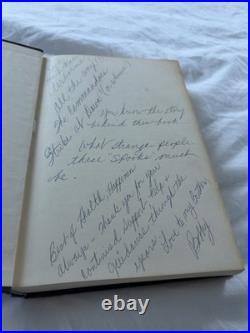 All the way!
The Commandos
Strike at
You know the story
behind this book!
What strange people
these "Spooks" must
be.
Best of Health, Happiness
always. Thank you for your
continued support, help &
guidance through the
years. Love to my
Betty